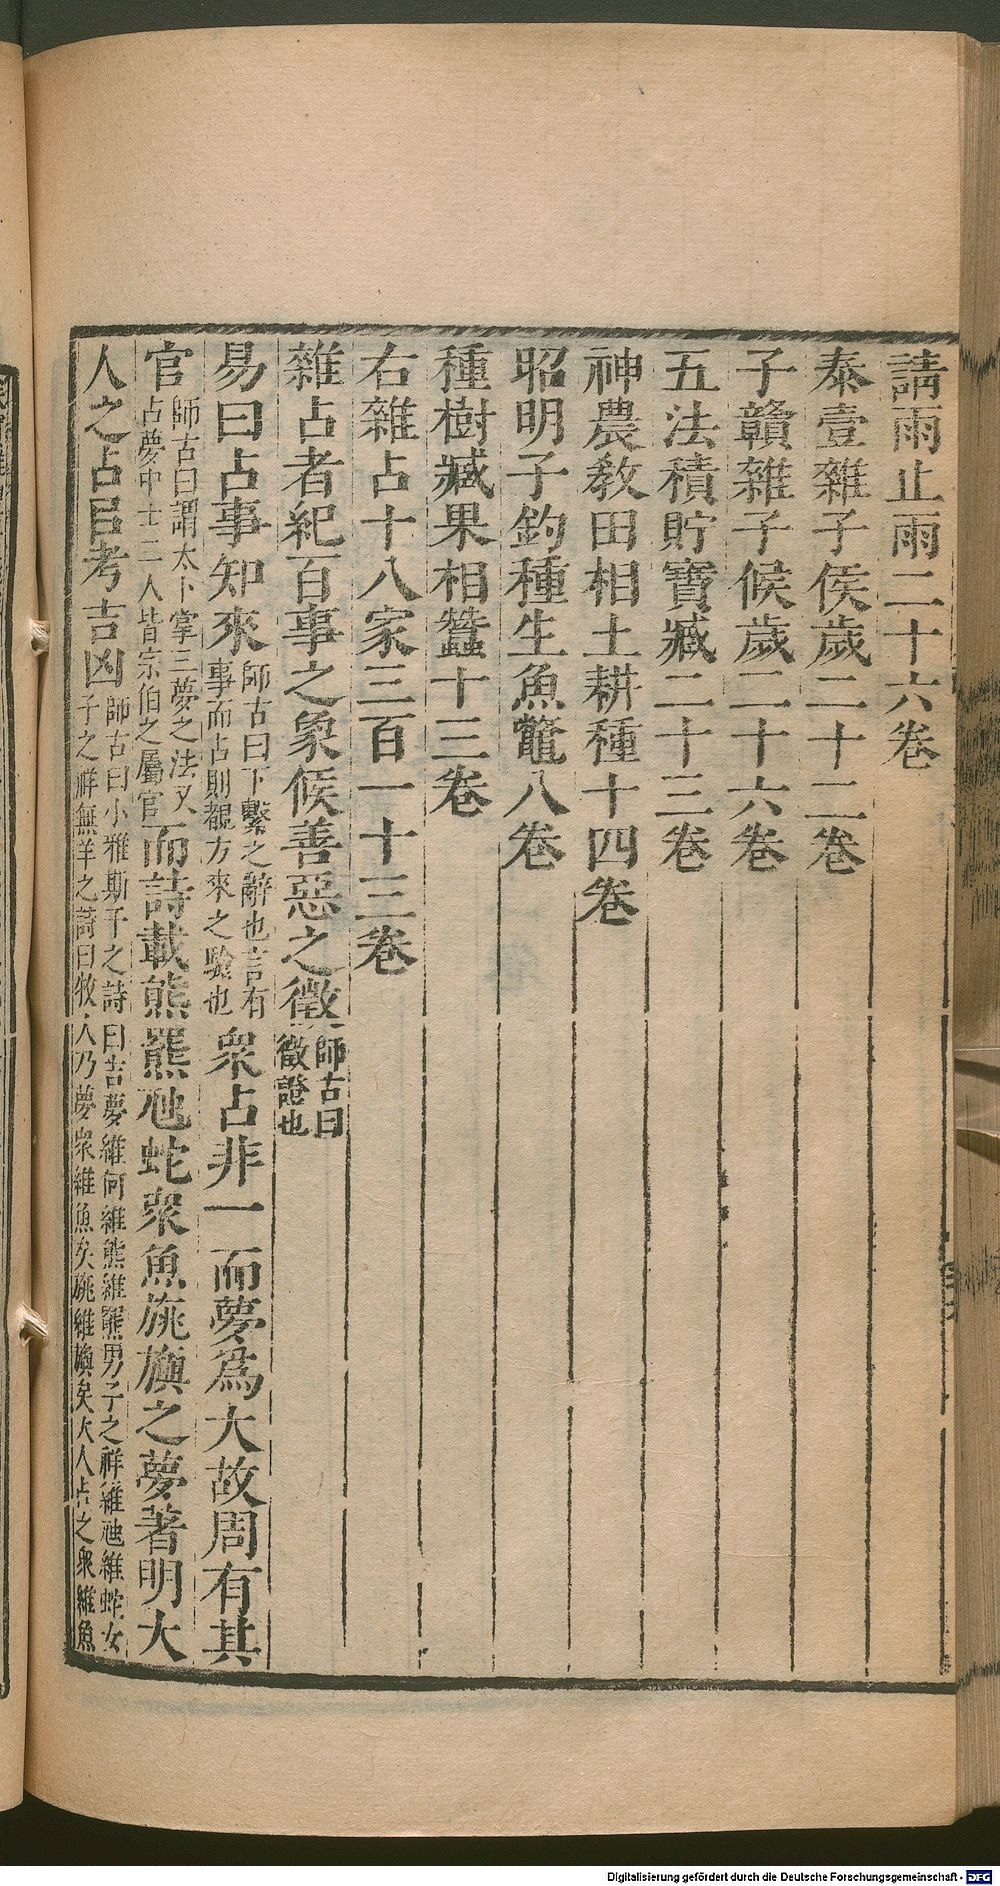 請雨止雨二十六卷
泰壹雜子侯歲二十二卷
子贛雜子候歲二十六卷
五法積貯寶臧二十三卷
神農教田相土耕種十四卷
昭明子釣種生魚鼈八卷
種樹臧果相蠶十三卷
右雜占十八家三百一十三卷
雜占者紀百事之象候善惡之徵師古曰徵證也
易曰占事知來師古曰下繫之辭也言有事而占則覩方來之驗也衆占非一而夢爲大故周有其
官師古曰謂太卜掌三夢之法又占夢中士二人皆宗伯之屬官而詩載熊羆虺蛇衆魚旐旟之夢著明大
人之占㠯考吉凶師古曰小雅斯干之詩曰吉夢維何維熊維羆男子之祥維虺維蛇女子之祥無羊之詩曰牧人乃夢衆維魚矣旐維旟矣大人占之衆維魚
Digitalisierung gefördert durch die Deutsche Forschungsgemeinschaft - DFG